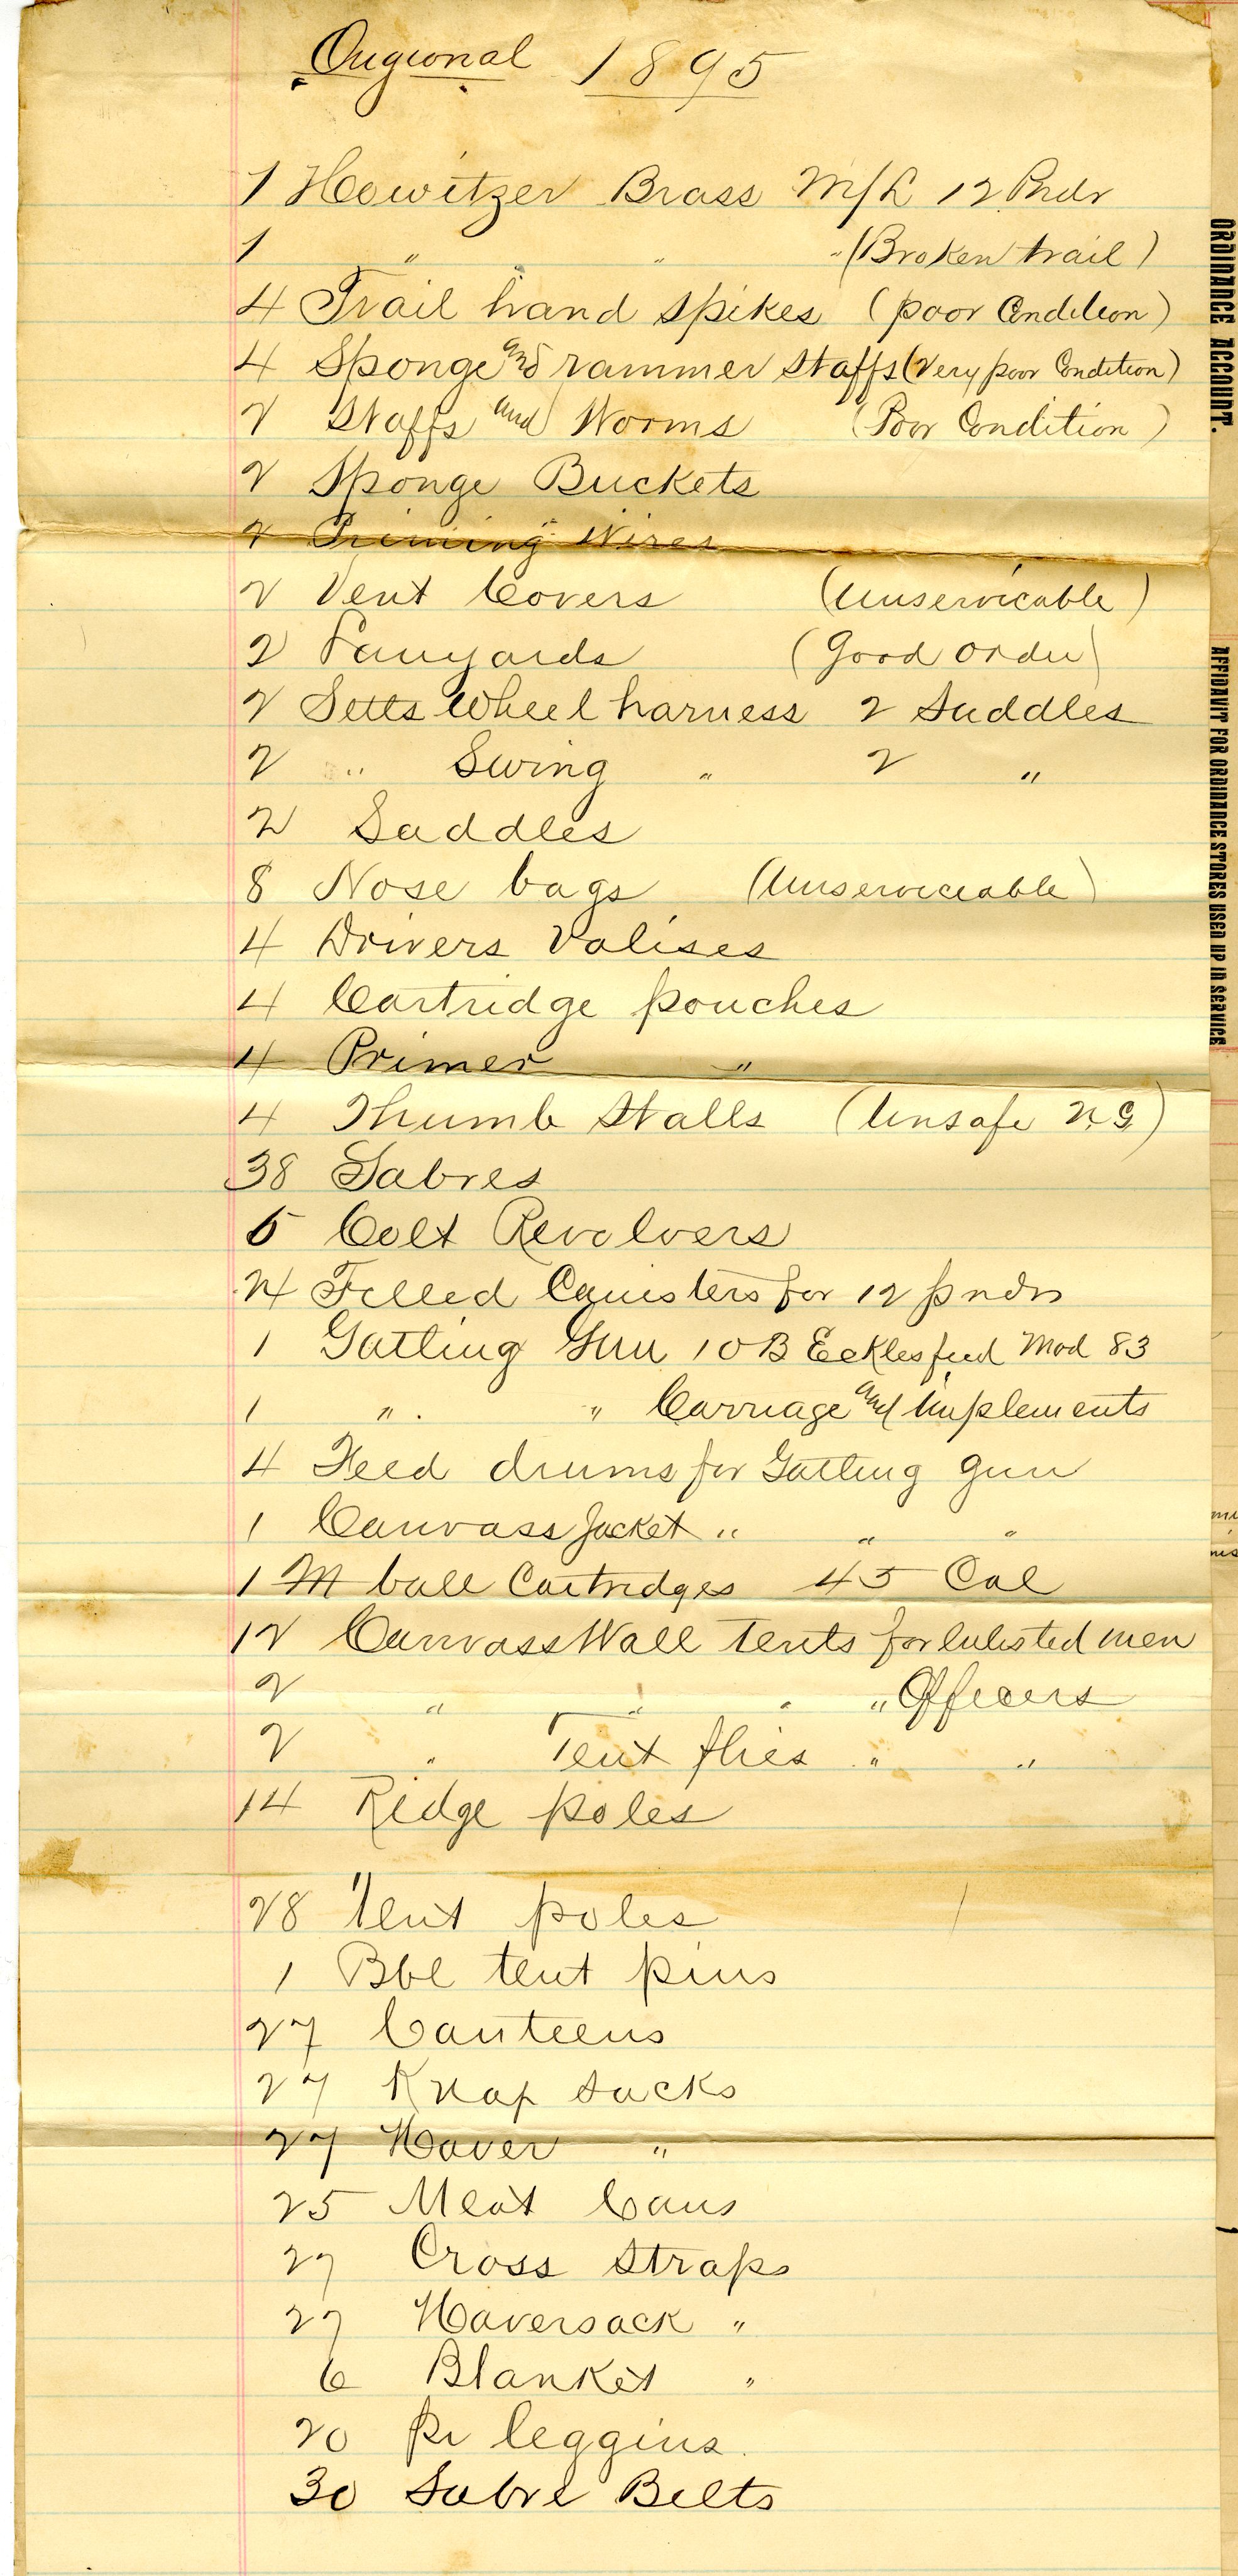 Origional 1895
1 Howitzer Brass M/L 12 Pndr
1 " " " " (Broken trail)
4 Trail hand spikes (poor Condition)
4 Sponge and rammer staffs (Very poor Condition)
2 Staffs and Worms (Poor Condition)
2 Sponge Buckets
2 Priming Wires
2 Vent Covers (Unservicable)
2 Lanyards (Good order)
2 Setts Wheel harness 2 Saddles
2 " Swing " 2 "
2 Saddles
8 Nose bags (Unserviceable)
4 Drivers Valises
4 Cartridge pouches
4 Primer "
4 Thumb Stalls (Unsafe N.G.)
38 Sabres
5 Colt Revolvers
24 Filled Canisters for 12 pndrs
1 Gatling Gun 10 B Eckles feed Mod 83
1 " " Carriage and Implements
4 Feed drums for Gatling gun
1 Canvass Jacket " " "
1 M ball Cartridges 45 Cal
12 Canvass Wall tents for enlisted men
2 " " " " Officers
2 " Tent flies " "
14 Ridge poles
28 Tent poles
1 Bbl tent pins
27 Canteens
27 Knap sacks
27 Haver "
25 Meat Cans
27 Cross Straps
27 Haversack "
6 Blanket "
20 Pr leggins
30 Sabre Belts
ORDINANCE ACCOUNT.
AFFIDAVIT FOR ORDINANCE STORES USED UP IN SERVICE